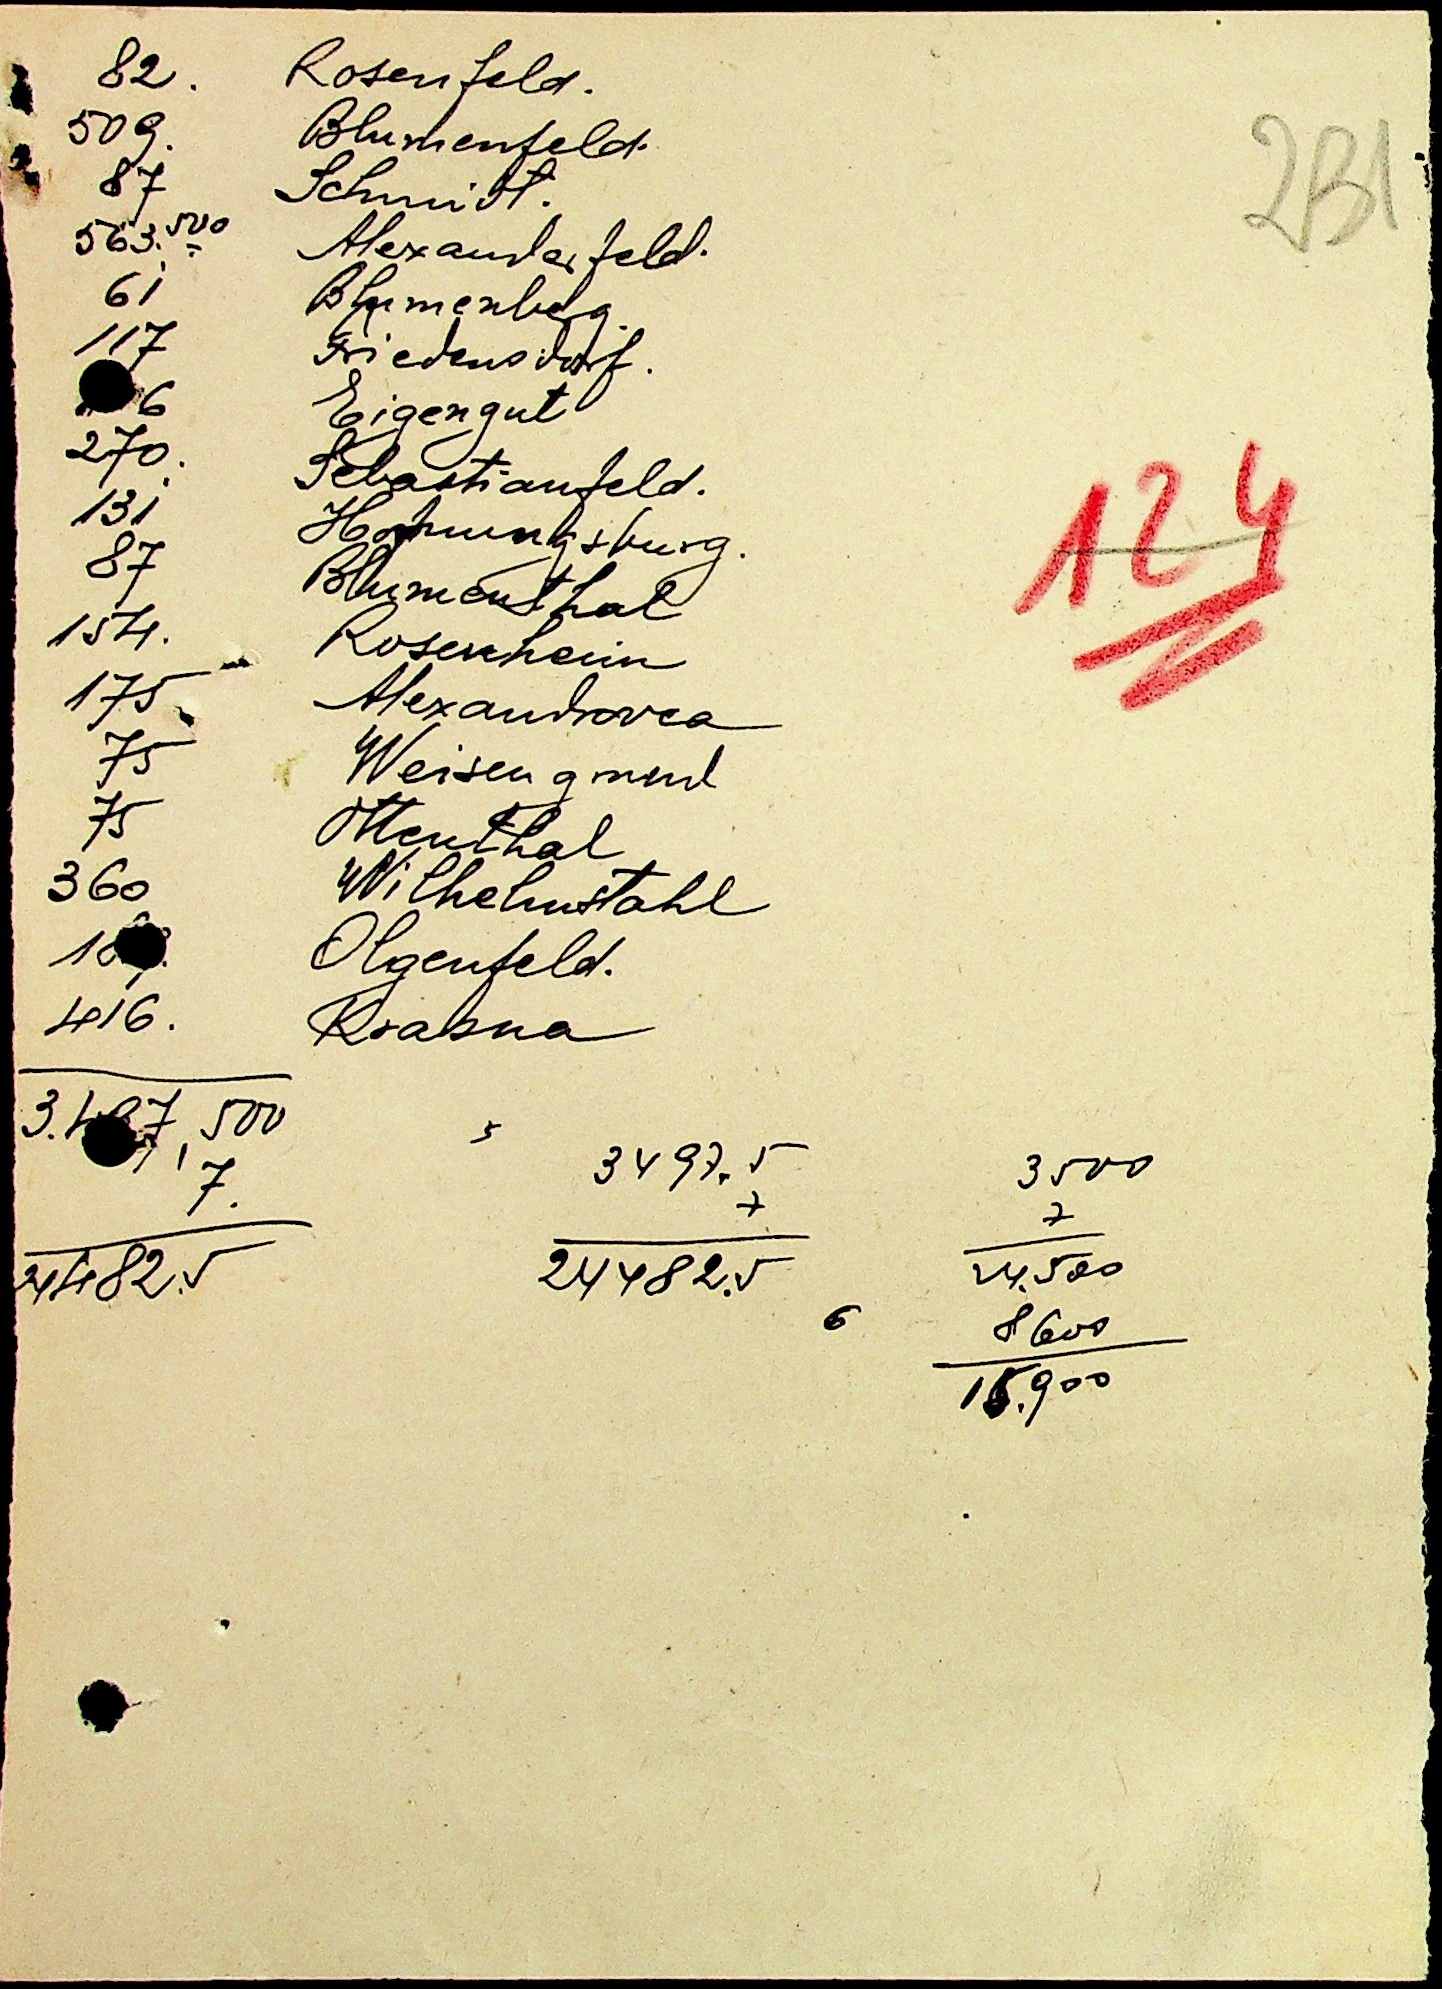 82. Rosenfeld.
509. Blumenfeld.
87 Schmidt.
563.500 Alexanderfeld.
61 Blumenberg.
117 Friedensdorf.
6 Eigengut
270. Sebastianfeld.
131 Hornungsburg.
87 Blumenthal
154. Rosenheim
175 Alexandrovca
75 Weisengrund
75 Ottenthal
360 Wilhelmstahl
Olgenfeld.
416. Krasna
3.497,500
7.
24482.5
3497.5
7
24482.5
3500
7
24.500
8600
15.900
5
6
124
231